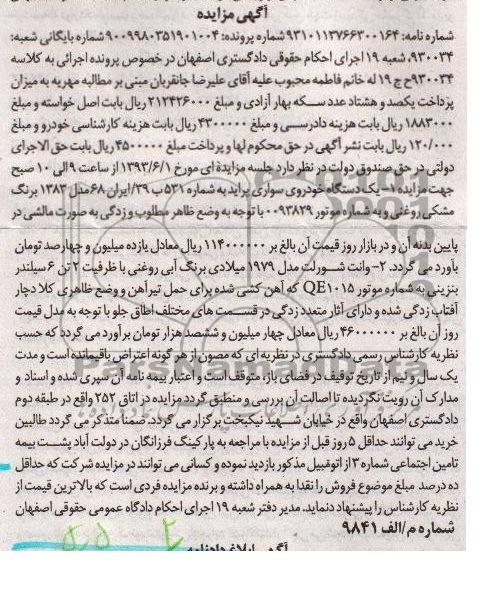 آگهی مزایده
شماره نامه: ۹۳۱۰۱۱۳۷۶۶۳۰۰۱۶۴ شماره پرونده: ۹۰۰۹۹۸۰۳۵۱۹۰۱۰۰۴ شماره بایگانی شعبه:
۹۳۰۰۳۴، شعبه ۱۹ اجرای احکام حقوقی دادگستری اصفهان در خصوص پرونده اجرائی به کلاسه
۹۳۰۰۳۴ ح ج ۱۹ له خانم فاطمه محبوب علیه آقای علیرضا جانقربان مبنی بر مطالبه مهریه به میزان
پرداخت یکصد و هشتاد عدد سکه بهار آزادی و مبلغ ۲۱۲۴۲۶۰۰۰ ریال بابت اصل خواسته و مبلغ
۱۸۸۳۰۰۰ ریال بابت هزینه دادرسی و مبلغ ۴۳۰۰۰۰۰ ریال بابت هزینه کارشناسی خودرو و مبلغ
۱۲۰/۰۰۰ ریال بابت نشر آگهی در حق محکوم لها و پرداخت مبلغ ۴۵۰۰۰۰۰ ریال بابت حق الاجرای
دولتی در حق صندوق دولت در نظر دارد جلسه مزایده ای مورخ ۱۳۹۳/۶/۱ از ساعت ۹ الی ۱۰ صبح
جهت مزایده ۱- یک دستگاه خودروی سواری پراید به شماره ۵۳۱ ب ۳۹/ایران ۶۸ مدل ۱۳۸۳ برنگ
مشکی روغنی و به شماره موتور ۰۰۹۳۸۲۹ با توجه به وضع ظاهر مطلوب و زدگی به صورت مالشی در
پایین بدنه آن و در بازار روز قیمت آن بالغ بر ۱۱۴۰۰۰۰۰۰ ریال معادل یازده میلیون و چهارصد تومان
بآورد می گردد. ۲- وانت شورلت مدل ۱۹۷۹ میلادی برنگ آبی روغنی با ظرفیت ۲ تن ۶ سیلندر
بنزینی به شماره موتور QE۱۰۱۵ که آهن کشی شده برای حمل تیرآهن و وضع ظاهری کلا دچار
آفتاب زدگی شده و دارای آثار متعدد زدگی در قسمت های مختلف اطاق جلو با توجه به مدل قیمت
روز آن بالغ بر ۴۶۰۰۰۰۰۰ ریال معادل چهار میلیون و ششصد هزار تومان برآورد می گردد که حسب
نظریه کارشناس رسمی دادگستری در نظریه ای که مصون از هر گونه اعتراض باقیمانده است و مدت
یک سال و نیم از تاریخ توقیف در فضای باز، متوقف است و اعتبار بیمه نامه آن سپری شده و اسناد و
مدارک آن رویت نگردیده تا اصالت آن بررسی و منطبق گردد مزایده در اتاق ۲۵۲ واقع در طبقه دوم
دادگستری اصفهان واقع در خیابان شهید نیکبخت برگزار می گردد. ضمنا متذکر می گردد طالبین
خرید می توانند حداقل ۵ روز قبل از مزایده با مراجعه به پارکینگ فرزانگان در دولت آباد پشت بیمه
تامین اجتماعی شماره ۳ از اتومبیل مذکور بازدید نموده و کسانی می توانند در مزایده شرکت که حداقل
ده درصد مبلغ موضوع فروش را نقدا به همراه داشته و برنده مزایده فردی است که بالاترین قیمت از
نظریه کارشناس را پیشنهاد دنماید. مدیر دفتر شعبه ۱۹ اجرای احکام دادگاه عمومی حقوقی اصفهان
شماره م/الف ۹۸۴۱